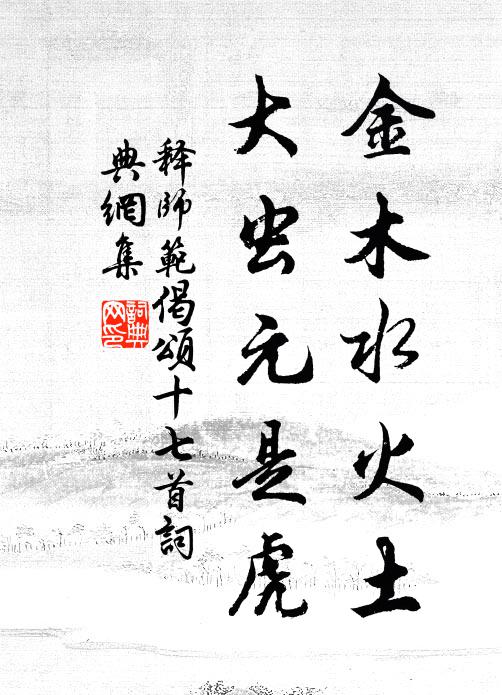 金木水火土
大虫元是虎
释師範偈頌十七首詞
典網集
詞典
网印